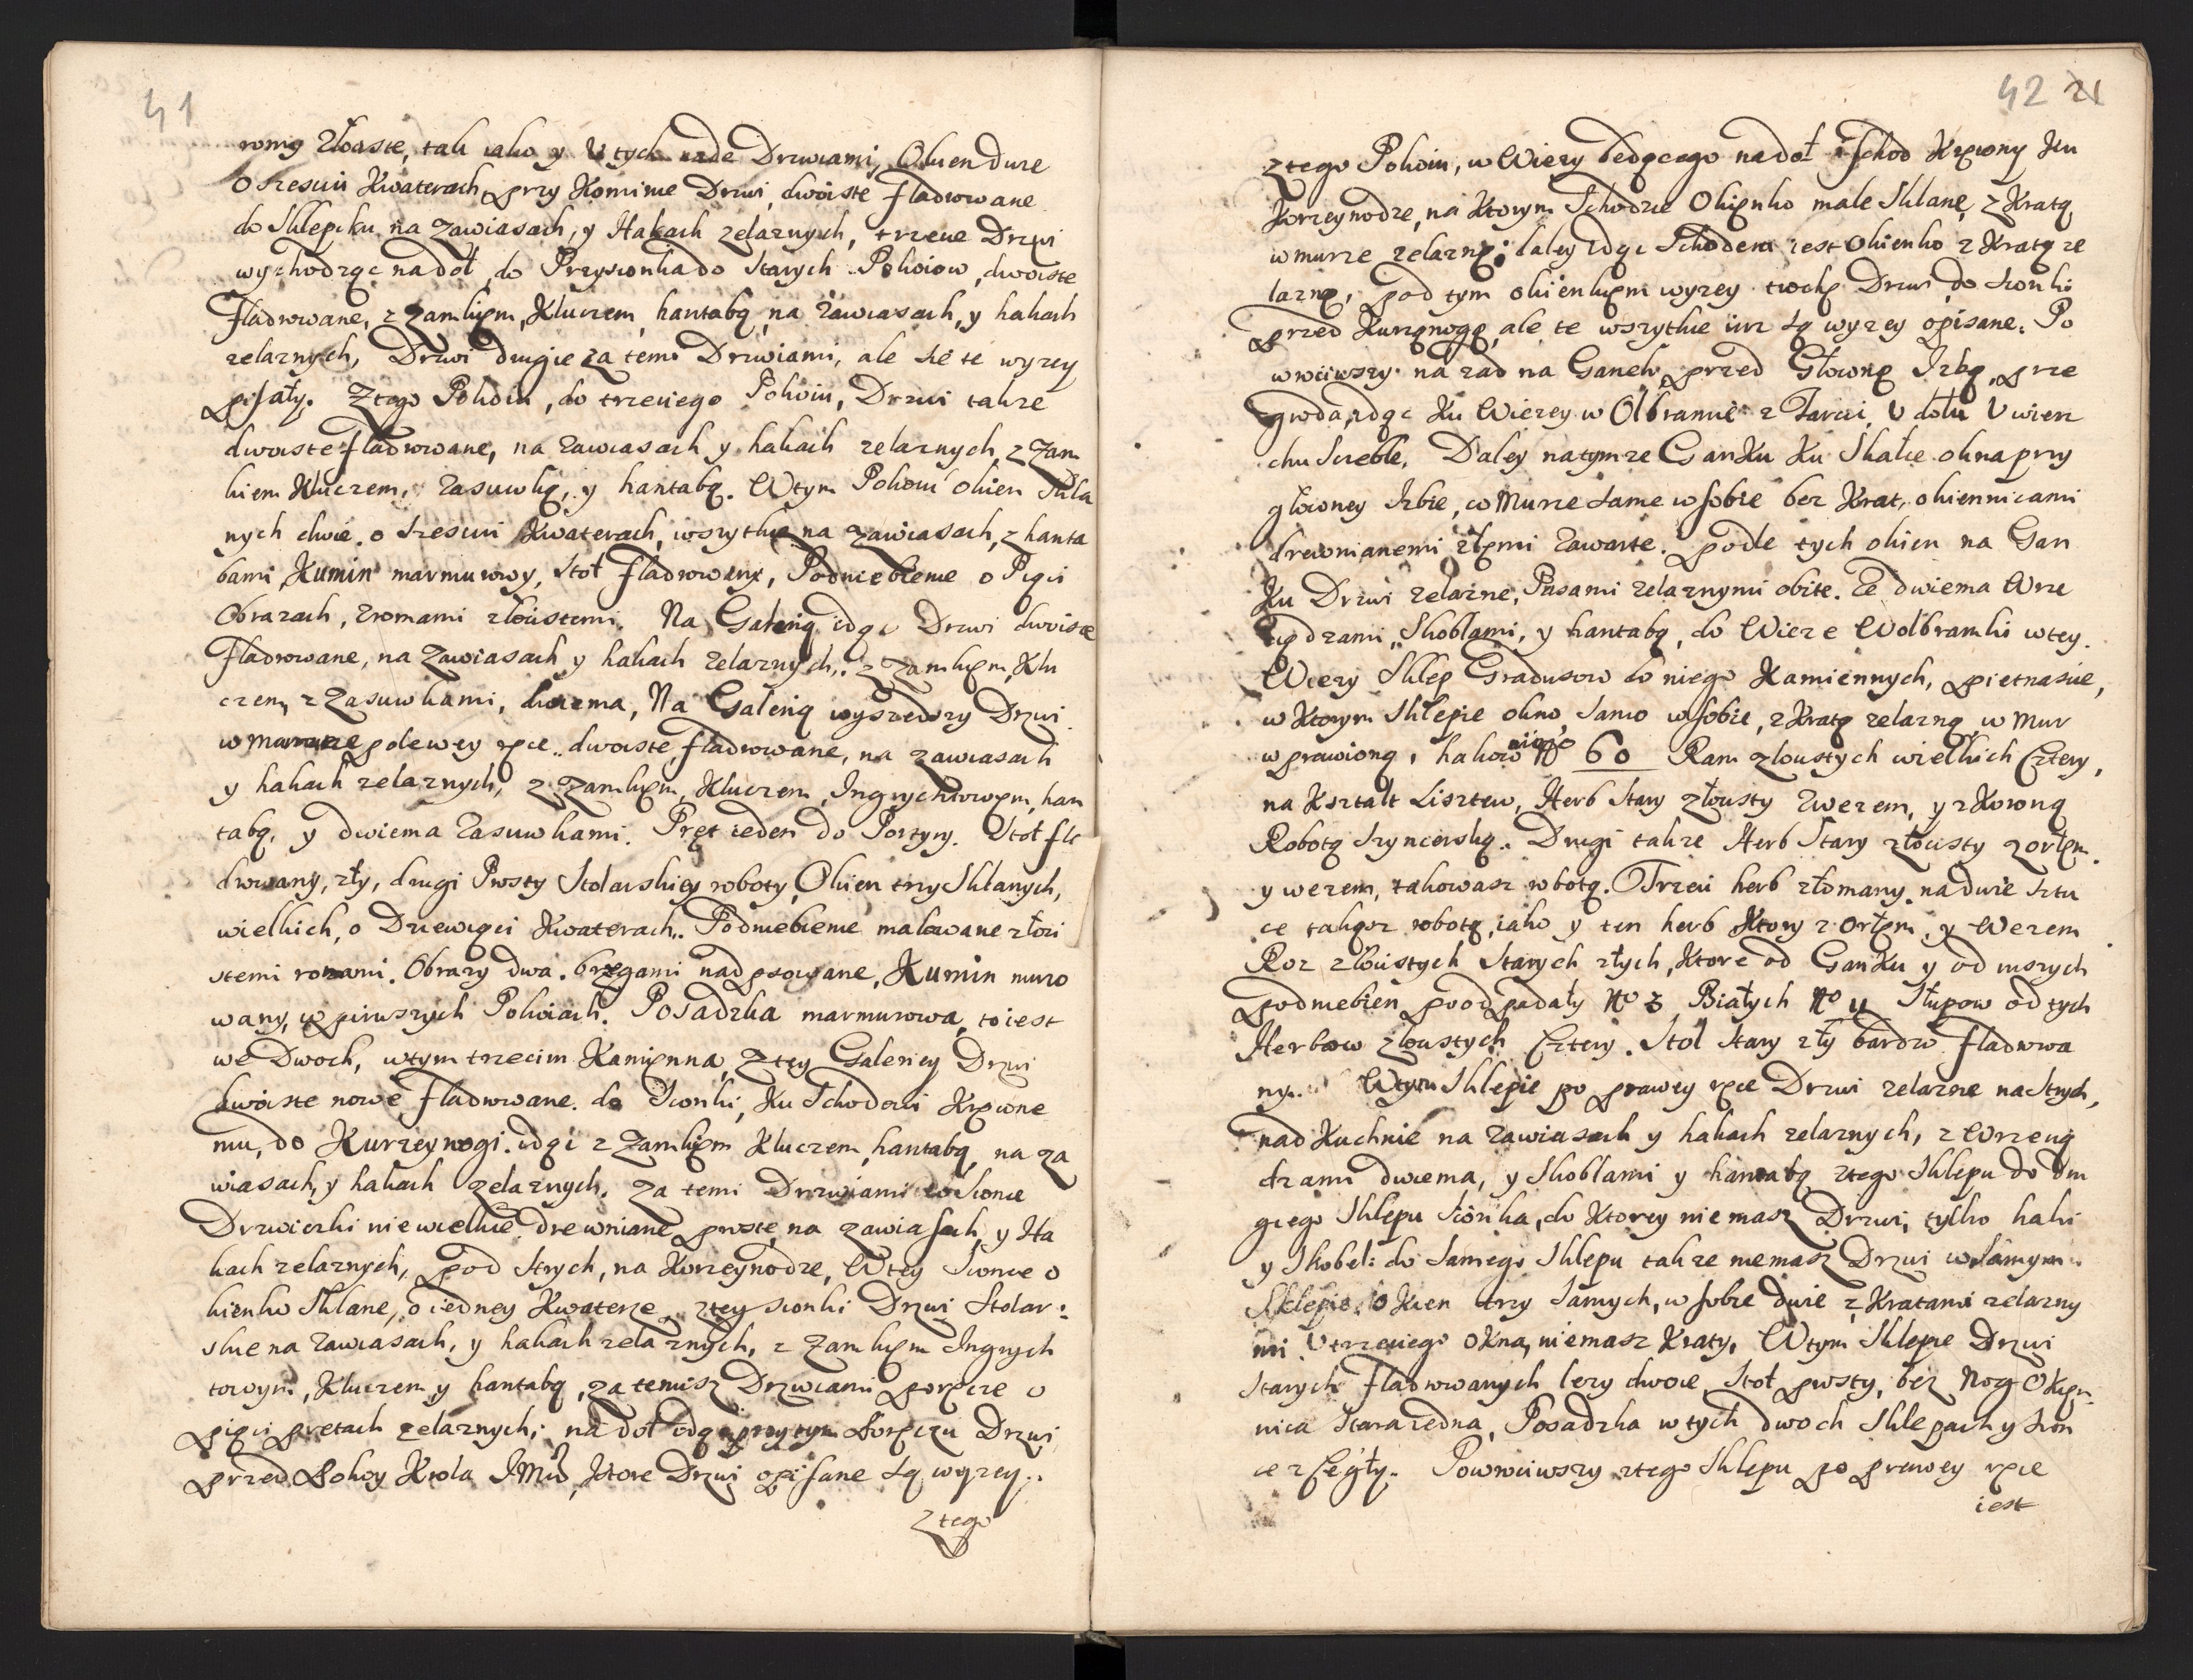 41
romy złoiste, tak iako y V tych nade Drzwiami, Okien dwie
o szesciu Kwaterach, przy Kominie Drzwi dwoiste fladrowane
do Sklepiku na zawiasach, y Hakach zelaznych, trzecie Drzwi
wychodząc na doł, do Przysionka do starych Pokoiow, dwoiste
fladrowane, z zamkięm, Kluczem, hantabą, na zawiasach, y hakach
zelaznych, Drzwi drugie za temi Drzwiami, ale się te wyzey
pisały. Ztego Pokoiu, do trzeciego Pokoiu, Drzwi takze
dwoiste fladrowane, na zawiasach y hakach zelaznych, z Zam
kiem Kluczem, Zasuwką, y hantabą. Wtym Pokoiu okien Skla
nych dwie, o szesciu Kwaterach, wszytkie na zawiasach, z hanta
bami, Kumin marmurowy, stoł fladrowany, Podniebienie o Piąci
Obrazach, z romami złoistemi. Na Galerią idąc Drzwi dwoiste
fladrowane, na zawiasach y hakach zelaznych, z zamkięm, Klu
czem, z Zasuwkami, dwiema, Na Galerią wyszedszy Drzwi
w murze po lewey ręce dwoiste, fladrowane, na zawiasach
y hakach zelaznych, z zamkięm, Kluczem, Ingrychtowęm, han
tabą, y dwiema Zasuwkami. Pręt ieden do Portyry. Stoł fla
drowany, zły, drugi Prosty Stolarskiey roboty, Okien trzy Sklanych,
wielkich, o Dziewiąci Kwaterach. Podniebienie malowane złoci
stemi romami. Obrazy dwa brzegami nadpsowane, Kumin muro
wany, w pirwszych Pokoiach. Posadzka marmurowa, to iest
we Dwoch, w tym trzecim Kamięnna, z tey Galeriey Drzwi
dwoiste nowe fladrowane do Sionki, Ku Schodowi Kręcone
mu, do Kurzeynogi idąc z Zamkięm Kluczem, hantabą, na za
wiasach, y hakach zelaznych. Za temi Drzwiami w Sionce
Drzwiczki niewielkie drewniane proste, na zawiasach, y Ha
kach zelaznych, pod Strych, na Kurzeynodze, Wtey Sionce o
kienko Sklane, o iedney Kwaterze, z tey sionki Drzwi Stolar:
skie na zawiasach, y hakach zelaznych, z Zamkięm Ingrych
towym, Kluczem y hantabą, za temisz Drzwiami poręcze o
piąci prętach zelaznych; na doł idąc przy tym Poręczu Drzwi
przed Pokoy Krola JMci, Ktore Drzwi opisane są wyzey.
Ztego
42 21
z tego Pokoiu, w Wiezy będącego na doł Schod Kręcony Ku
Korzeynodze, na Ktorym Schodzie Okięnko małe Sklane, z Kratą
w murze zelazną; daley idąc Schodem iest Okienko z Kratą ze
lazną, pod tym okienkięm wyzey trochę Drzwi do sionki
przed Kurząnogą, ale te wszytkie iuz są wyzey opisane. Po
wrociwszy na zad na Ganek, przed Głowną Izbę, prze
groda, idąc Ku Wiezey w Olbramie z Tarcic, V dołu V wierz
chu Szreble. Daley na tymze Ganku Ku Skałce okna przy
głowney Izbie, w Murze same w sobie bez Krat, okiennicami
drewnianemi złęmi zawarte. podle tych okien na Gan
Ku Drzwi zelazne, Pasami zelaznymi obite. Ze dwiema Wrze
ciądzami, Skoblami, y hantabą, do Wieze Wolbramki w tey
Wiezy Sklep Gradusow do niego Kamiennych, piętnascie,
w Ktorym Sklepie okno samo w sobie, z Kratą zelazną w mur
wprawioną, hakow No 60 Ram złoistych wielkich Cztery,
na Kształt Lisztew, Herb stary złoisty z wezem, y z Koroną
Robotą Sznycerską. Drugi takze Herb Stary złoisty z orłęm
y wezem, takowasz robotą. Trzeci herb złomany na dwie sztu
ce takąsz robotą, iako y ten herb Ktory z Orłęm, y Wezem
Roz złoistych starych złych, Ktore od Ganku y od inszych
podniebien poodpadały No 3 Białych No 4 Słupow od tych
Herbow złoistych Cztery. Stoł stary zły bardzo fladrowa
ny. Wtym Sklepie po prawey ręce Drzwi zelazne na Strych,
nad Kuchnie na zawiasach y hakach zelaznych, z Wrzecią
dzami dwiema, y Skoblami y hantabą z tego Sklepu do dru
giego Sklepu Sionka, do Ktorey nie masz Drzwi, tylko haki
y Skobel: do samego Sklepu takze niemasz Drzwi w samym
Sklepie Okien trzy samych, w sobie dwie z Kratami zelazny
mi V trzeciego okna, niemasz Kraty, Wtym Sklepie Drzwi
starych fladrowanych lezy dwoie, Stoł prosty, bez Nog Okięn
nica stara iedna, Posadzka w tych dwoch Sklepach y sion
ce z Cegły. Powrociwszy z tego Sklepu po prawey ręce
iest